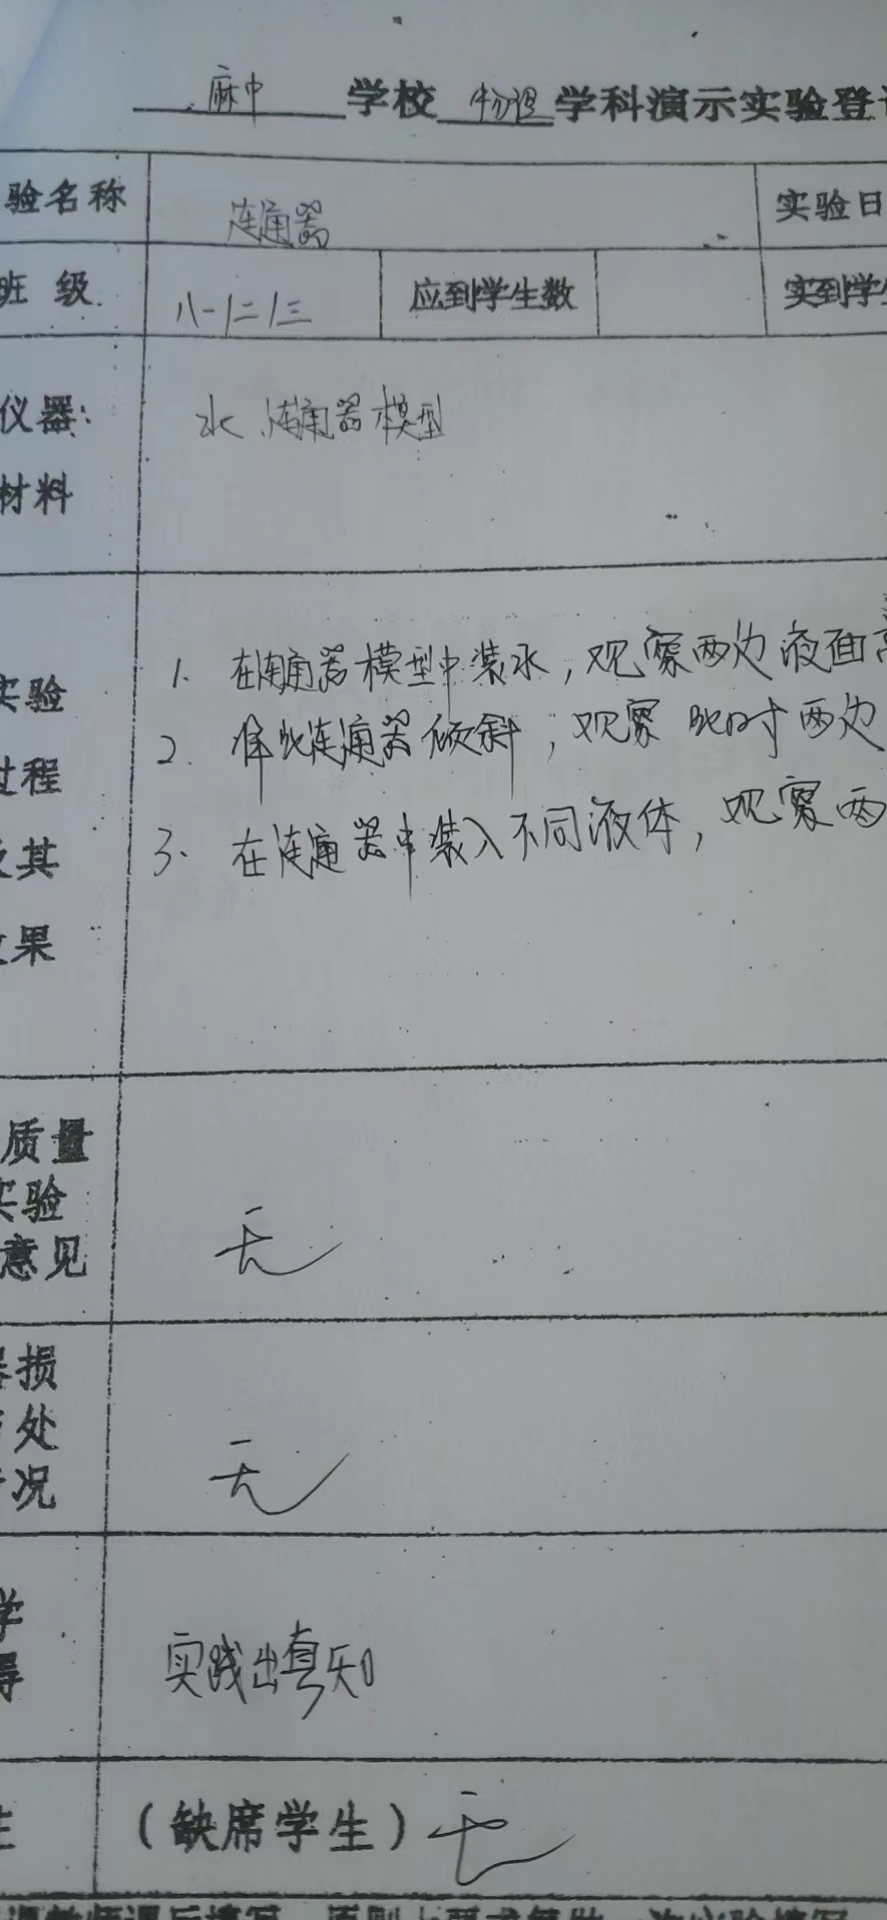 麻中 学校 物理 学科演示实验登
验名称 连通器 实验日
班 级 八一/二/三 应到学生数 实到学
仪器: 水、连通器模型
材料
1. 在连通器模型中装水,观察两边液面高
实验
2. 连通器倾斜,观察此时两边
过程
3. 在连通器中装入不同液体,观察两
其
果
质量
实验
意见 无
损
处
况 无
学
得 实践出真知
(缺席学生) 无